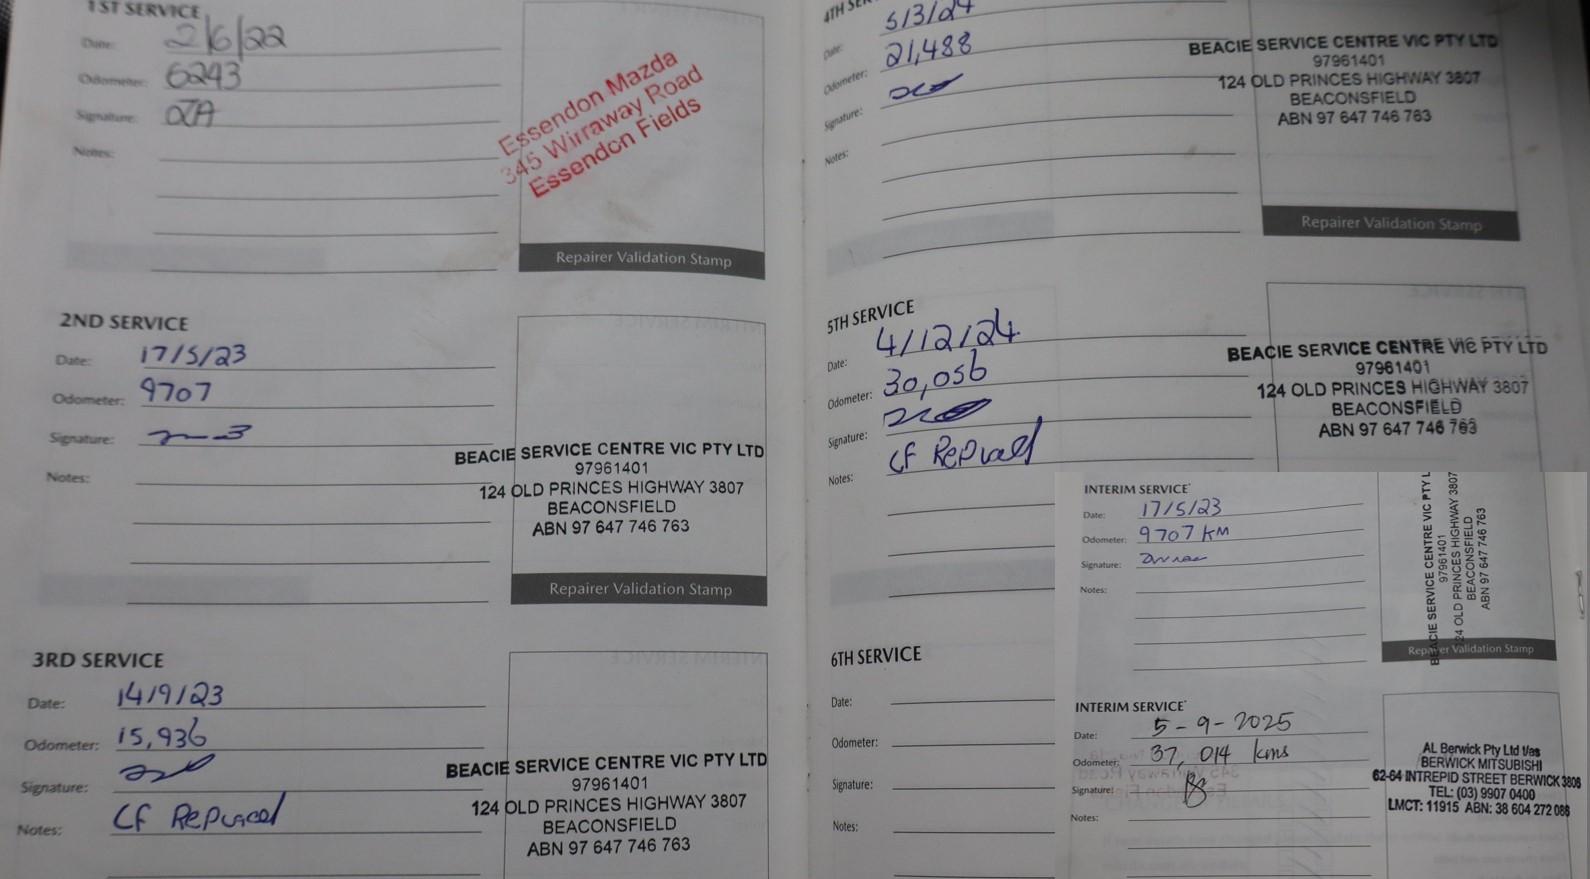 1ST SERVICE
Date: 2/6/22
Odometer: 6243
Signature:
Notes:
Essendon Mazda
345 Wirraway Road
Essendon Fields
Repairer Validation Stamp
2ND SERVICE
Date: 17/5/23
Odometer: 9707
Signature:
Notes:
BEACIE SERVICE CENTRE VIC PTY LTD
97961401
124 OLD PRINCES HIGHWAY 3807
BEACONSFIELD
ABN 97 647 746 763
Repairer Validation Stamp
3RD SERVICE
Date: 14/9/23
Odometer: 15,936
Signature:
Notes: CF Replaced
BEACIE SERVICE CENTRE VIC PTY LTD
97961401
124 OLD PRINCES HIGHWAY 3807
BEACONSFIELD
ABN 97 647 746 763
4TH SER
Date: 5/3/24
Odometer: 21,488
Signature:
Notes:
BEACIE SERVICE CENTRE VIC PTY LTD
97961401
124 OLD PRINCES HIGHWAY 3807
BEACONSFIELD
ABN 97 647 746 763
Repairer Validation Stamp
5TH SERVICE
Date: 4/12/24
Odometer: 30,056
Signature:
Notes: CF Replaced
BEACIE SERVICE CENTRE VIC PTY LTD
97961401
124 OLD PRINCES HIGHWAY 3807
BEACONSFIELD
ABN 97 647 746 763
6TH SERVICE
Date:
Odometer:
Signature:
Notes:
INTERIM SERVICE*
Date: 17/5/23
Odometer: 9707 KM
Signature:
Notes:
BEACIE SERVICE CENTRE VIC PTY L
97961401
24 OLD PRINCES HIGHWAY 3807
BEACONSFIELD
ABN 97 647 746 763
Repairer Validation Stamp
INTERIM SERVICE*
Date: 5-9-2025
Odometer: 37,014 kms
Signature:
Notes:
AL Berwick Pty Ltd t/as
BERWICK MITSUBISHI
62-64 INTREPID STREET BERWICK 3806
TEL: (03) 9907 0400
LMCT: 11915 ABN: 38 604 272 086